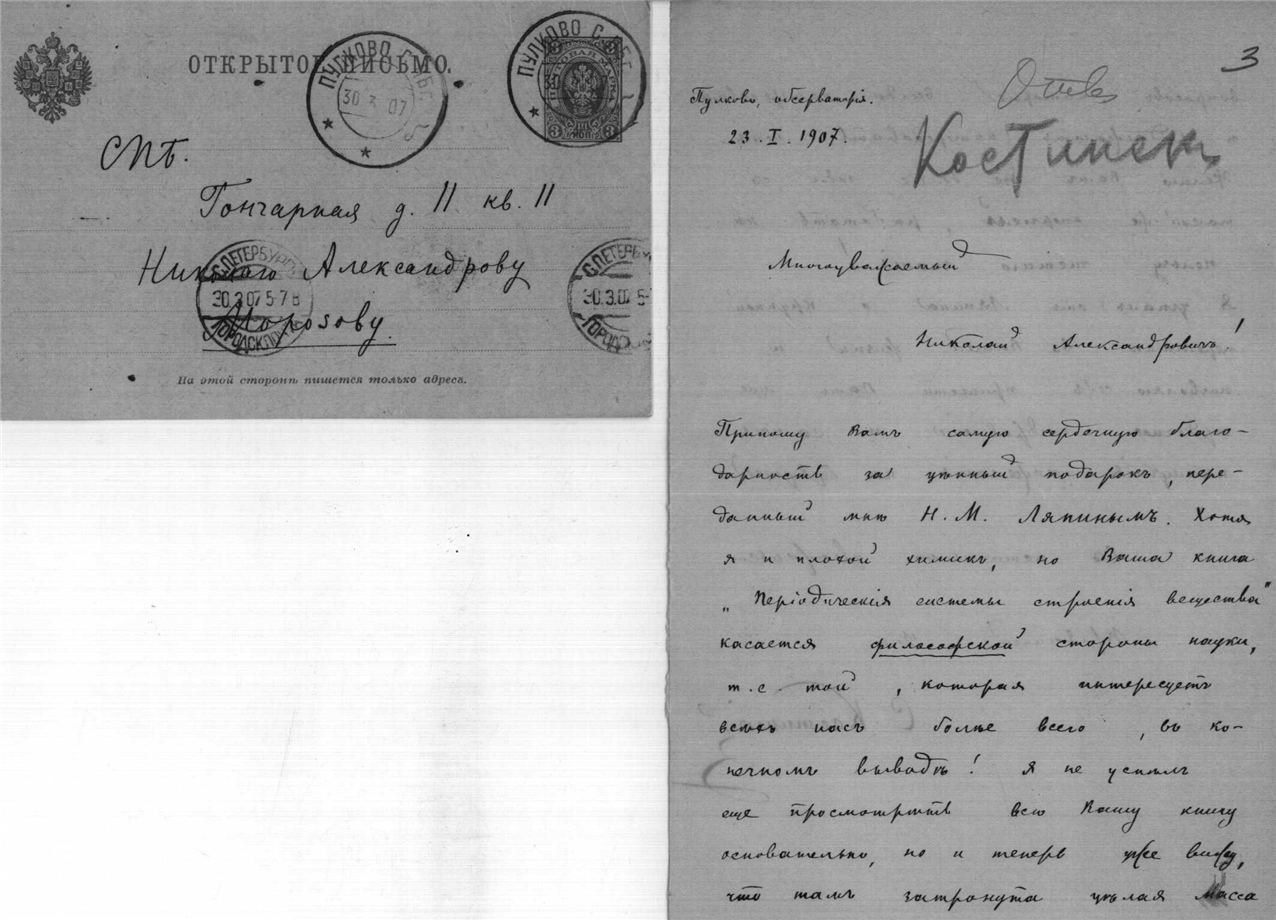 ОТКРЫТОЕ ПИСЬМО.
ПУЛКОВО С.ПБГ.
30 3 07
ПУЛКОВО С.ПБГ.
3 3
3 КОП. 3
СПБ.
Гончарная д. 11 кв. 11
Николаю Александрову
Морозову.
С.ПЕТЕРБУРГЪ
30.3.07 5-7В
ГОРОДСК.ПОЧТА
С.ПЕТЕРБУ
30.3.07 5-
ГОРОД
На этой сторонѣ пишется только адресъ.
3
Отв
Пулково, обсерваторія.
23. I. 1907.
Костинск
Многоуважаемый
Николай Александровичъ!
Приношу Вамъ самую сердечную благо-
дарность за цѣнный подарокъ, пере-
данный мнѣ Н. М. Ляпинымъ. Хотя
я и плохой химикъ, но Ваша книга
„Періодическія системы строенія вещества"
касается философской стороны науки,
т.е. той, которая интересуетъ
всѣхъ насъ болѣе всего, въ ко-
нечномъ выводѣ! Я не успѣлъ
еще просмотрѣть всю Вашу книгу
основательно, но и теперь уже вижу,
что тамъ затронута цѣлая масса